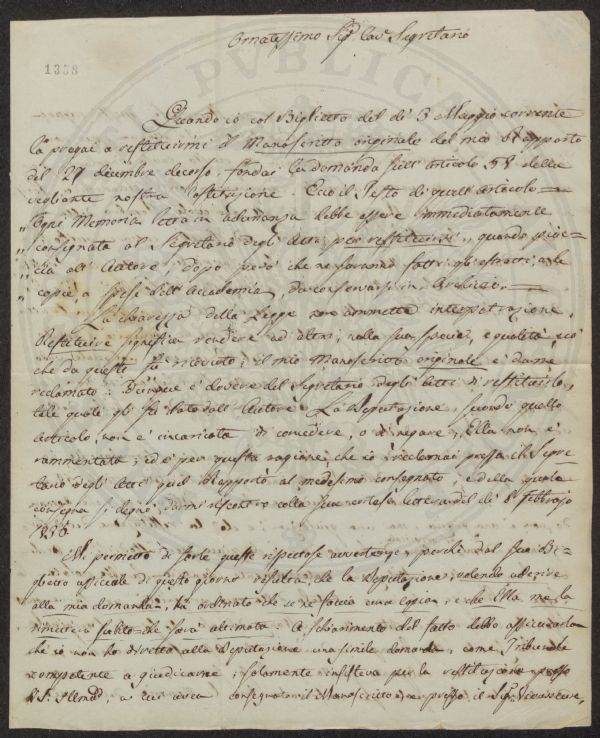 Ornatissimo Sigr Cav. Segretario
1338
Quando io col Biglietto del dì 3 Maggio corrente
la pregai a restituirmi il Manoscritto originale del mio Rapporto
del 27 dicembre decorso, fondai la domanda sull'articolo 58 della
vegliante nostra Costituzione. Ecco il Testo di quell'articolo =
„ Ogni Memoria letta in adunanza debbe essere immediatamente
„ consegnata al Segretario degli Atti, per restituirsi, quando piac-
„ cia all'Autore, dopo però che ne saranno fatti gli estratti, o le
„ copie, a spese dell'Accademia, da conservarsi in Archivio. =
La chiarezza della Legge non ammette interpretazione.
Restituire significa rendere ad altri, nella sua specie, e qualità, ciò
che da questi fu ricevuto; il mio Manoscritto originale è da me
reclamato: Dunque è dovere del Segretario degli Atti di restituirlo,
tale quale gli fu dato dall'Autore. La Deputazione, secondo quello
articolo, non è incaricata di concedere, o di negare; Ella non è
rammentata; ed è per questa ragione, che io reclamai presso il Segre-
tario degli Atti quel Rapporto al medesimo consegnato, e della quale
consegna si degnò darmi riscontro colla sua cortese lettera del dì 8 Febbrajo
1836.
Mi permetto di farle queste rispettose avvertenze, perchè dal suo Bi-
glietto officiale di questo giorno risulta, che la Deputazione, volendo aderire
alla mia domanda, ha ordinato che se ne faccia una copia, e che Ella me la
rimetterà subito che sarà ultimata. A schiarimento del fatto debbo assicurarla
che io non ho diretto alla Deputazione una simile domanda, come Tribunale
competente a giudicarne; solamente insisteva per la restituzione presso
a cui aveva consegnato il Manoscritto, e presso il Sigr